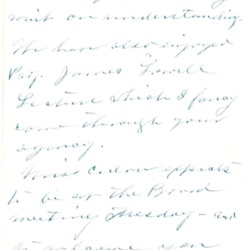 point an understanding.
We have also enjoyed
Prof. James' Lowell
Lecture which I fancy
came through your
agency.
Miss expects
to be at the Board
meeting Tuesday - and
to welcome you